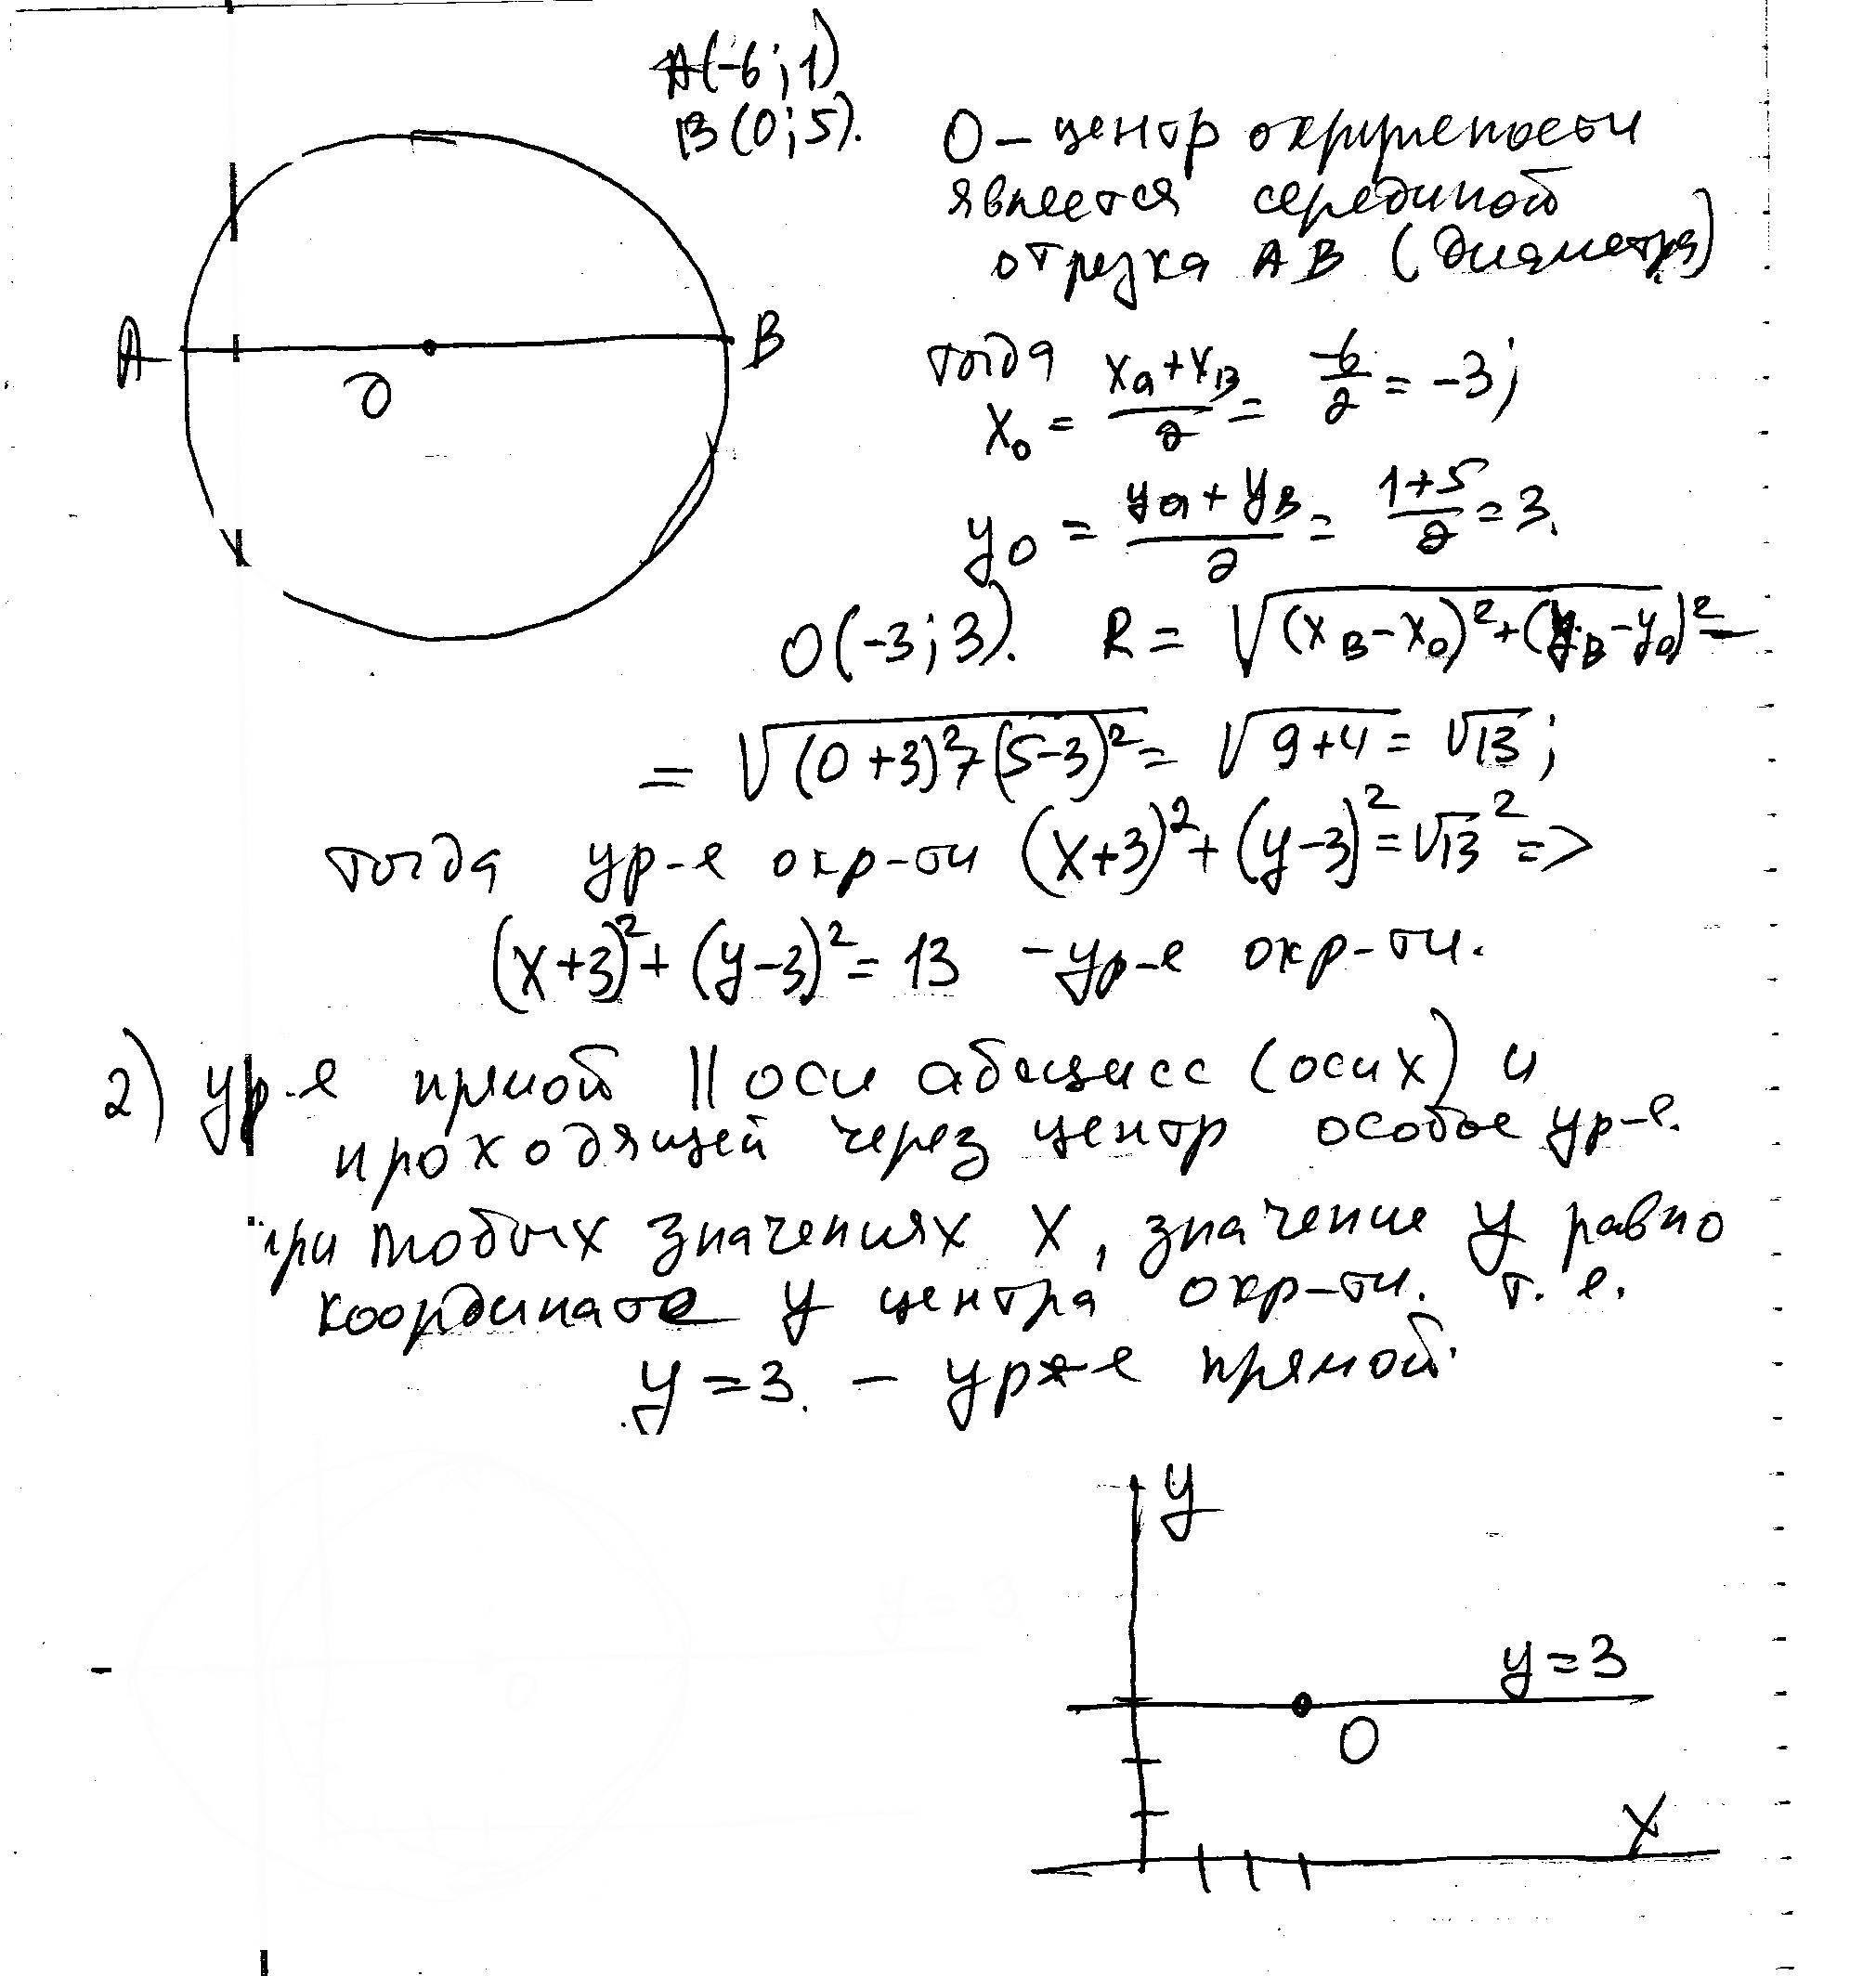 A(-6; 1)
B(0; 5).
O – центр окружности
является серединой
отрезка AB (диаметра)
A
B
O
тогда
x₀ = (xₐ + x_B)/2 = -6/2 = -3;
y₀ = (yₐ + y_B)/2 = (1+5)/2 = 3.
O(-3; 3). R = √((x_B – x₀)² + (y_B – y₀)²) =
= √((0+3)² + (5-3)²) = √(9+4) = √13;
тогда ур-е окр-ти (x+3)² + (y-3)² = √13² =>
(x+3)² + (y-3)² = 13 – ур-е окр-ти.
2) ур-е прямой || оси абсцисс (оси x) и
проходящей через центр особое ур-е.
при любых значениях x, значение y равно
координате y центра окр-ти. т. е.
y = 3. – ур-е прямой
y
y = 3
O
x